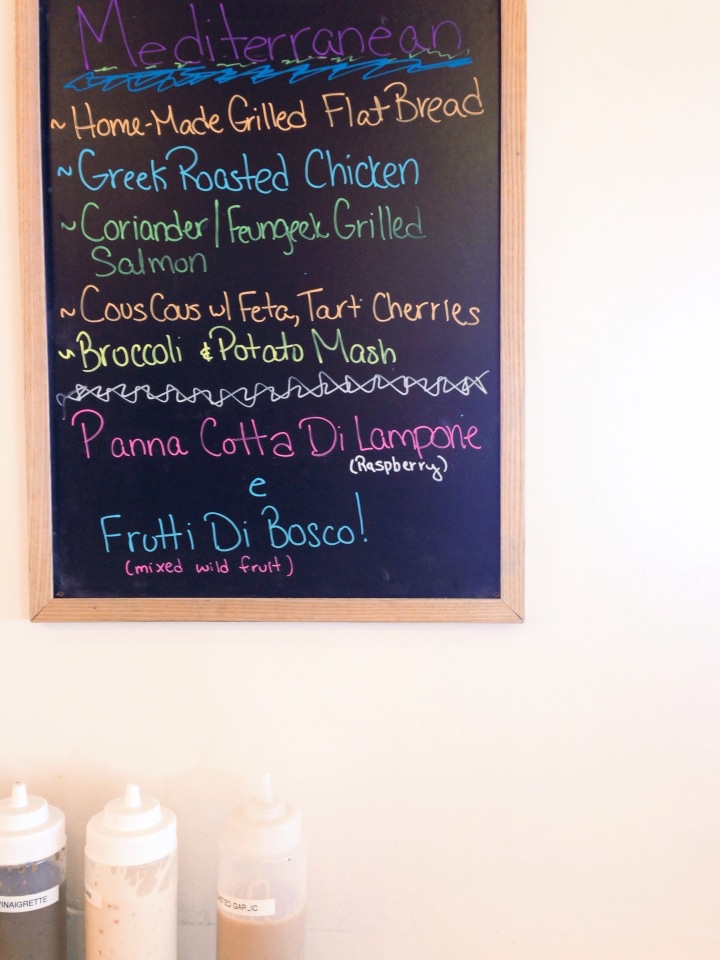 Mediterranean
~ Home-Made Grilled Flat Bread
~ Greek Roasted Chicken
~ Coriander / Feungeek Grilled
Salmon
~ CousCous w/ Feta, Tart Cherries
~ Broccoli & Potato Mash
Panna Cotta Di Lampone
(Raspberry)
e
Frutti Di Bosco!
(mixed wild fruit)
VINAIGRETTE
GARLIC